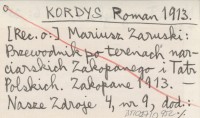 KORDYS Roman 1913.
[Rec. o:] Mariusz Zaruski:
Przewodnik po terenach nar-
ciarskich Zakopanego i Tatr
Polskich. Zakopane 1913. —
Nasze Zdroje 4, nr 9, dod.: